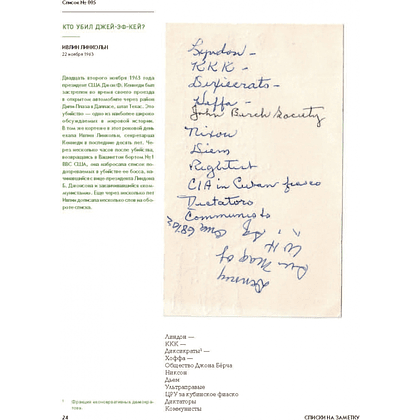 Список № 005
КТО УБИЛ ДЖЕЙ-ЭФ-КЕЙ?
ИВЛИН ЛИНКОЛЬН
22 ноября 1963
Двадцать второго ноября 1963 года
президент США Джон Ф. Кеннеди был
застрелен во время своего проезда
в открытом автомобиле через район
Дили-Плаза в Далласе, штат Техас. Это
убийство — одно из наиболее широко
обсуждаемых в мировой истории.
В том же кортеже в этот роковой день
ехала Ивлин Линкольн, секретарша
Кеннеди в последние десять лет. Че-
рез несколько часов после убийства,
возвращаясь в Вашингтон бортом №1
ВВС США, она набросала список по-
дозреваемых в убийстве ее босса, на-
чинающийся с вице-президента Линдона
Б. Джонсона и заканчивающийся комму-
нистами. Еще через несколько лет
Ивлин дописала несколько слов на обо-
роте списка.
Lyndon -
KKK -
Dixiecrats -
Hoffa -
John Birch Society
Nixon
Diem
Rightist
CIA in Cuban fiasco
Dictators
Communists
Линдон —
ККК —
Диксикраты¹ —
Хоффа —
Общество Джона Бёрча
Никсон
Дьем
Ультраправые
ЦРУ за кубинское фиаско
Диктаторы
Коммунисты
24
СПИСКИ НА ЗАМЕТКУ